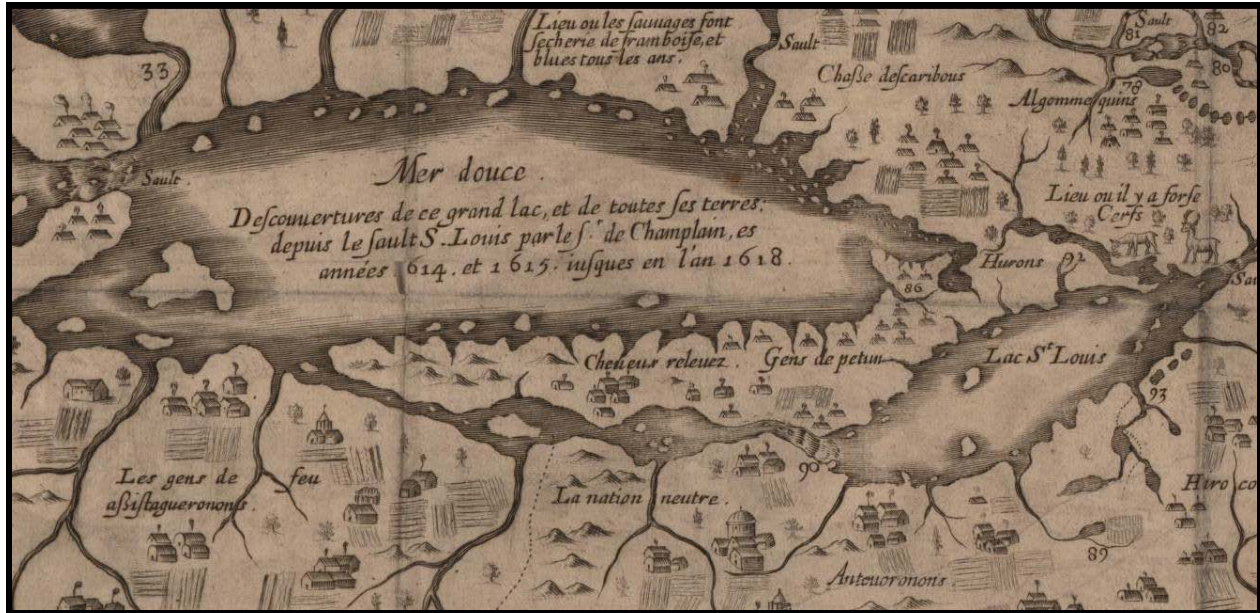 Lieu ou les sauuages font
secherie de framboise, et
blues tous les ans.
33
Sault
81
Sault
82
80
Chasse des caribous
78
Algommequins
Sault.
Mer douce.
Descouuertures de ce grand lac, et de toutes ses terres;
depuis le sault S. Louis par le sr. de Champlain, es
années 1614. et 1615. iusques en l'an 1618.
Lieu ou il y a forse
Cerfs
Hurons
92
86
Sau
Cheueus releuez.
Gens de petun
Lac St Louis
93
90
Les gens de feu
assistagueronons
La nation neutre.
Hiroco
89
Anteuoronons.